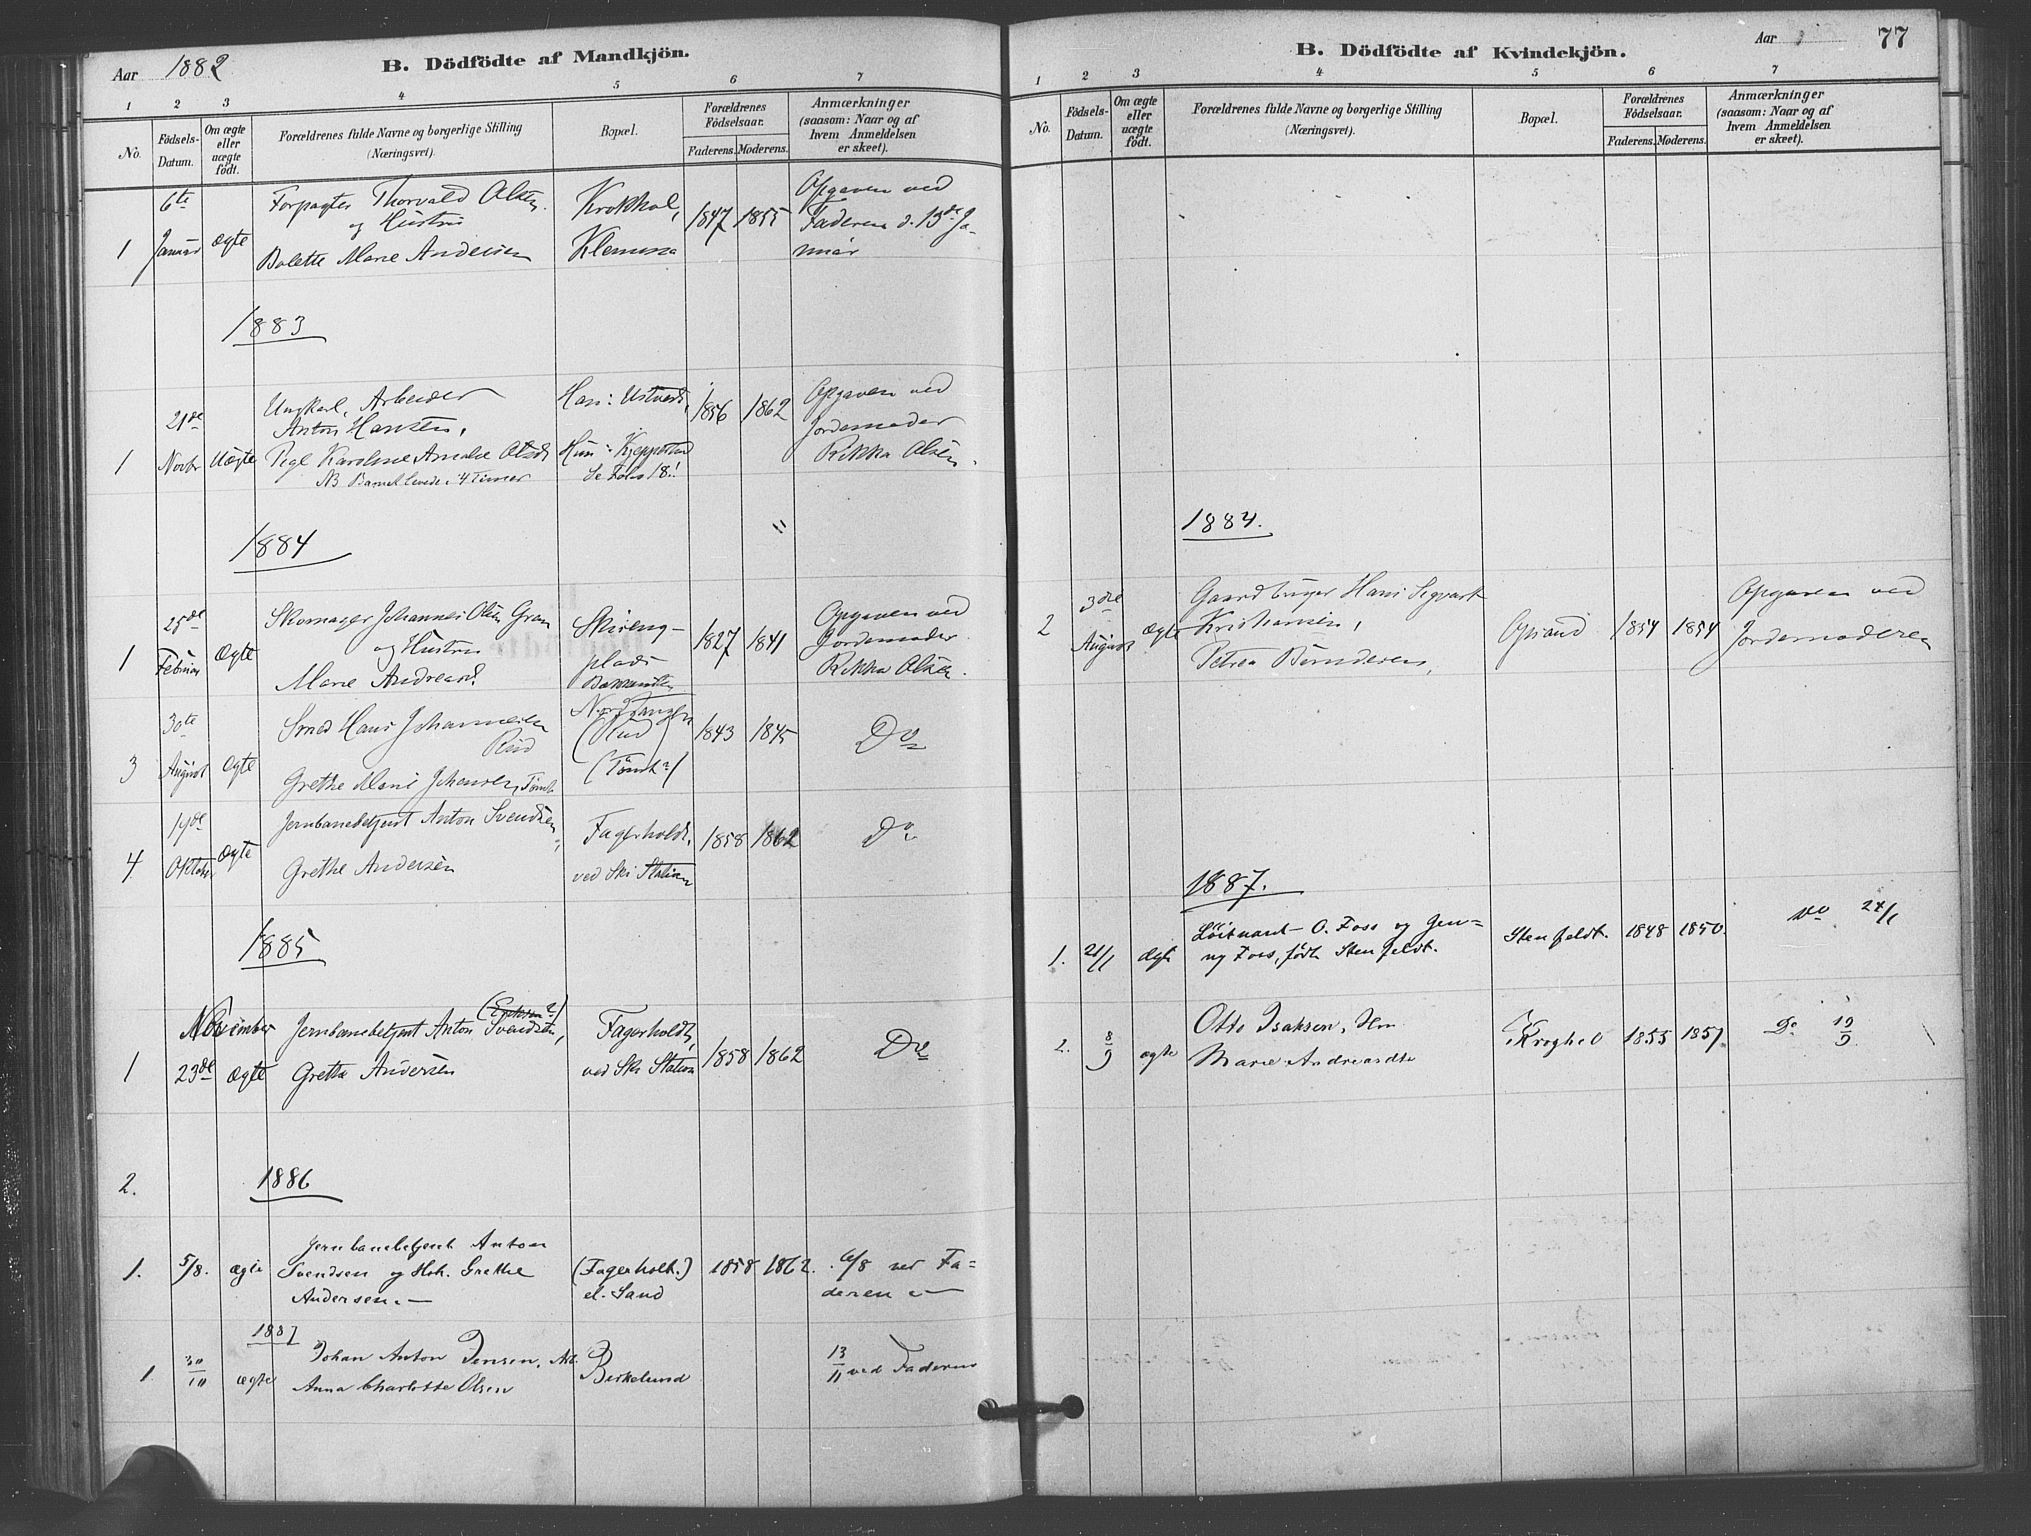 Aar 1882
B. Dödfödte af Mandkjön.
1 2 3 4 5 6 7
No.
Födsels-
Datum.
Om ægte
eller
uægte
födt.
Forældrenes fulde Navne og borgerlige Stilling
(Næringsvei).
Bopæl.
Forældrenes
Födselsaar.
Faderens. Moderens.
Anmærkninger
(saasom: Naar og af
hvem Anmeldelsen
er skeet).
1
6te
Januar
ægte
Forpagter Thorvald Olsen
og Hustru
Bolette Marie Andersen
Krokhol,
Klemma
1847 1855
Opgaven ved
Faderen d. 13de Ja-
nuar
1883
1
21de
Novbr
Uægte
Ungkarl, Arbeider
Anton Hansen,
Pige Karoline Amalie Olsdt
NB Barnet levede 4 Timer
Han: Ustvedt,
Hun: Kjeppestad
Se Folio 18!
1856 1862
Opgaven ved
Jordemoder
Rikka Olsen.
1884
1
25de
Februar
Ægte
Skomager Johannes Olsen Gran
og Hustru
Marie Andreasd.
Skieng-
plads
1827 1841
Opgaven ved
Jordemoder
Rikka Olsen.
3
30te
August
Ægte
Smed Hans Johannesen
Rud
Grethe Marie Johansen, Tomt
(Rud)
(Tomt?)
1843 1845
Do
4
14de
Oktober
Ægte
Jernbanebetjent Anton Svendsen,
Grethe Andersen
Fagerholdt,
ved Ski Station
1858 1862
Do
1885
1
November
23de
Ægte
Jernbanebetjent Anton Svendsen,
Grethe Andersen
Fagerholdt,
ved Ski Station
1858 1862
Do
2.
1886
1. 5/8. ægte
Jernbanebetjent Anton
Svendsen og Hst. Grethe
Andersen.—
(Fagerholt.)
el. Sand
1858 1862.
6/8 ved Fa-
deren.—
1887
1. 30/10 ægte
Johan Anton Jensen,
Anna Charlotte Olsen
Birkelund
13/11 ved Faderen
B. Dödfödte af Kvindekjön.
Aar
77
1 2 3 4 5 6 7
No.
Födsels-
Datum.
Om ægte
eller
uægte
födt.
Forældrenes fulde Navne og borgerlige Stilling
(Næringsvei).
Bopæl.
Forældrenes
Födselsaar.
Faderens. Moderens.
Anmærkninger
(saasom: Naar og af
hvem Anmeldelsen
er skeet).
1884.
2
3die
August
Ægte
Gaardbruger Hans Sigvart
Kristiansen,
Petrea
1854 1854
Opgaven ved
Jordemoderen
1887.
1. 21/1 ægte
Löitnant O. Foss og Jen-
ny Foss, födt Stenfeldt.
Stenfeldt. 1848 1850.
do 24/1
2. 8/9 ægte
Otto Isaksen,
Marie Andreasdtr
Kroghol 1855 1857
Do 19/9